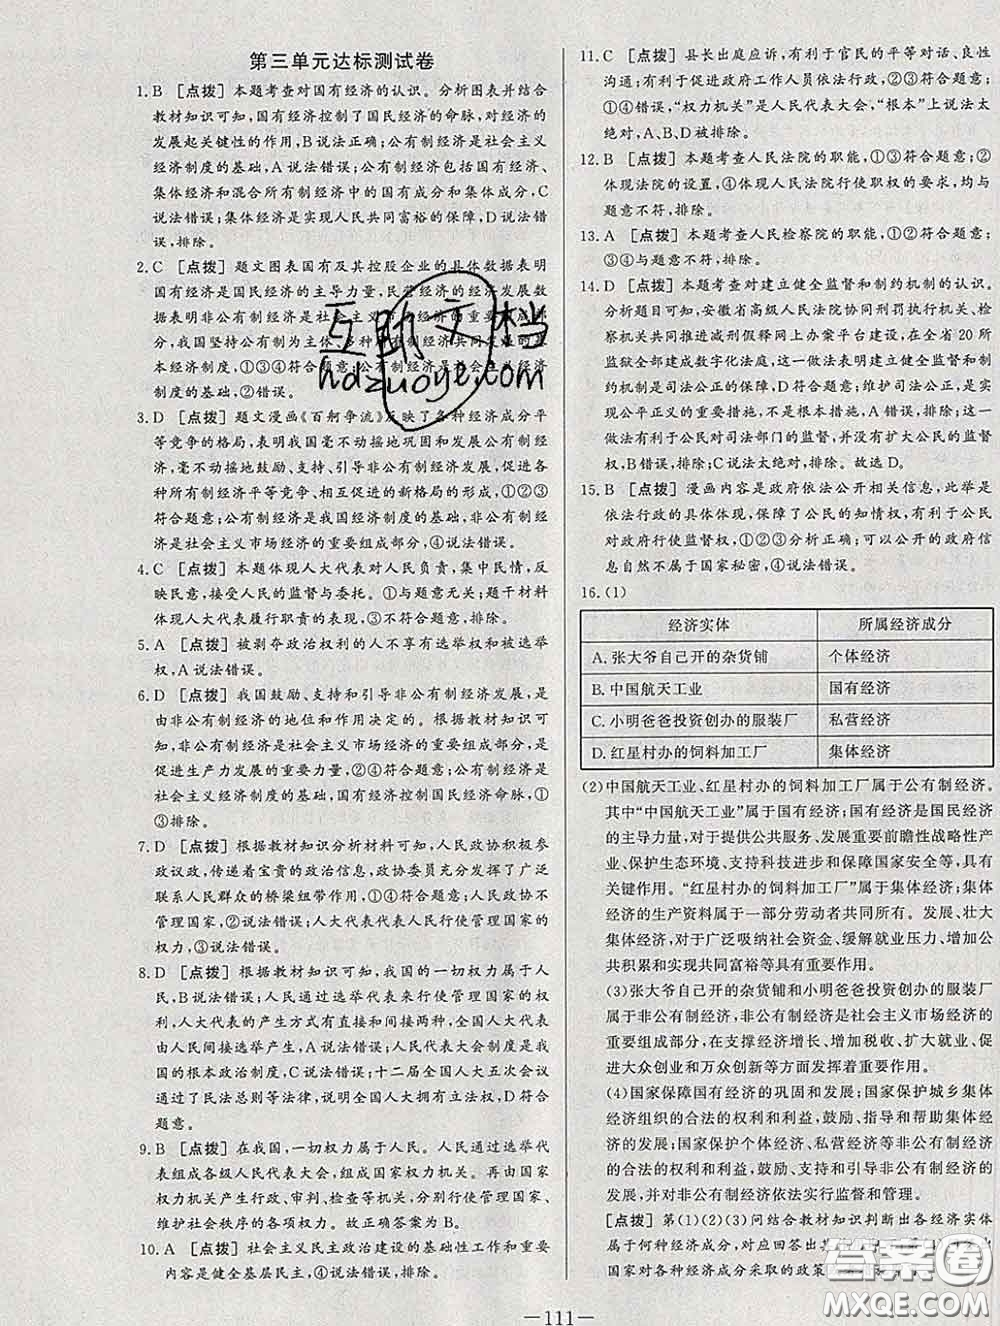 第三单元达标测试卷
1.B [点拨] 本题考查对国有经济的认识。分析图表并结合
教材知识可知,国有经济控制了国民经济的命脉,对经济的
发展起关键性的作用,B说法正确;公有制经济是社会主义
经济制度的基础,A说法错误;公有制经济包括国有经济、
集体经济和混合所有制经济中的国有成分和集体成分,C
说法错误;集体经济是实现人民共同富裕的保障,D说法错
误,排除。
2.C [点拨] 题文图表国有及其控股企业的具体数据表明
国有经济是国民经济的主导力量,民营经济的经济发展数
据表明非公有制经济是社会主义市场经济的重要组成部
分,我国坚持公有制为主体、多种所有制经济共同发展的基
本经济制度,①③④符合题意;公有制经济是社会主义经
济制度的基础,②错误。
3.D [点拨] 题文漫画《百舸争流》反映了各种经济成分平
等竞争的格局,表明我国毫不动摇地巩固和发展公有制经
济,毫不动摇地鼓励、支持、引导非公有制经济发展,促进各
种所有制经济平等竞争、相互促进的新格局的形成,①②③
符合题意;公有制经济是我国经济制度的基础,非公有制经
济是社会主义市场经济的重要组成部分,④说法错误。
4.C [点拨] 本题体现人大代表对人民负责,集中民情,反
映民意,接受人民的监督与委托。①与题意无关;题干材料
体现人大代表履行职责的表现,③不符合题意,排除。
5.A [点拨] 被剥夺政治权利的人不享有选举权和被选举
权,A说法错误。
6.D [点拨] 我国鼓励、支持和引导非公有制经济发展,是
由非公有制经济的地位和作用决定的。根据教材知识可
知,非公有制经济是社会主义市场经济的重要组成部分,是
促进生产力发展的重要力量,②④符合题意;公有制是社会
主义经济制度的基础,国有经济控制国民经济命脉,①
③排除。
7.D [点拨] 根据教材知识分析材料可知,人民政协积极参
政议政,传递着宝贵的政治信息,政协委员充分发挥了广泛
联系人民群众的桥梁纽带作用,①④符合题意;人民政协不
管理国家,②说法错误;人大代表代表人民行使管理国家的
权力,③说法错误。
8.D [点拨] 根据教材知识可知,我国的一切权力属于人
民,B说法错误;人民选举代表来行使管理国家的权
利,人大代表的产生方式有直接和间接两种,全国人大代表
由人民间接选举产生,A说法错误;人民代表大会制度是我
国的根本政治制度,C说法错误;十二届全国人大五次会议
通过了民法总则等法律,说明全国人大拥有立法权,D符合
题意。
9.B [点拨] 在我国,一切权力属于人民。人民通过选举代
表组成各级人民代表大会,组成国家权力机关。再由国家
权力机关产生行政、审判、检查等机关,分别行使管理国家、
维护社会秩序的各项权力。故正确答案为B。
10.A [点拨] 社会主义民主政治建设的基础性工作和重要
内容是健全基层民主,④说法错误,排除。
11.C [点拨] 县长出庭应诉,有利于官民的平等对话、良性
沟通;有利于促进政府工作人员依法行政,②③符合题意;
①④错误,“权力机关”是人民代表大会,“根本”上说法太
绝对,A、B、D被排除。
12.B [点拨] 本题考查人民法院的职能,①③符合题意;②
体现法院的设置,④体现人民法院行使职权的要求,均与
题意不符,排除。
13.A [点拨] 本题考查人民检察院的职能,①②符合题意;
③④与题意不符,排除。
14.D [点拨] 本题考查对建立健全监督和制约机制的认识。
分析题目可知,安徽省高级人民法院协同刑罚执行机关、检
察机关共同推进减刑假释网上办案平台建设,在全省20所
监狱全部建成数字化法庭,这一做法表明建立健全监督和制
约机制是司法公正的保障,D符合题意;维护司法公正,是实
现公平正义的重要措施,不是根本,A错误,排除;这一
做法有利于公民对司法部门的监督,并没有扩大公民的监督
权,B错误,排除;C说法太绝对,排除。故选D。
15.B [点拨] 漫画内容是政府依法公开相关信息,此举是
依法行政的具体体现,保障了公民的知情权,有利于公民对
政府实施监督,①②③分析正确;可以公开的政府信
息自然不属于国家秘密,④错误。
16.(1)
经济实体 所属经济成分
A.张大爷自己开的杂货铺 个体经济
B.中国航天工业 国有经济
C.小明爸爸投资创办的服装厂 私营经济
D.红星村办的饲料加工厂 集体经济
(2)中国航天工业、红星村办的饲料加工厂属于公有制经济。
其中“中国航天工业”属于国有经济;国有经济是国民经济
的主导力量,对于提供公共服务、发展重要前瞻性战略性产
业、保护生态环境、支持科技进步、保障国家安全等,具有
关键作用。“红星村办的饲料加工厂”属于集体经济;集体
经济的生产资料属于一部分劳动者共同所有。发展、壮大
集体经济,对于广泛吸纳社会资金、缓解就业压力、增加公
共积累和实现共同富裕等具有重要作用。
(3)张大爷自己开的杂货铺和小明爸爸投资创办的服装厂
属于非公有制经济,非公有制经济是社会主义市场经济的
重要组成部分,在支撑经济增长、增加税收、扩大就业、促
进大众创业和万众创新等方面发挥着重要作用。
(4)国家保障国有经济的巩固和发展;国家保护城乡集体
经济组织的合法的权利和利益,鼓励、指导和帮助集体经济
的发展;国家保护个体经济、私营经济等非公有制经济
的合法的权利和利益,鼓励、支持和引导非公有制经济的
发展,并对非公有制经济依法实行监督和管理。
[点拨] 第(1)(2)(3)问结合教材知识判断出各经济实体
属于何种经济成分,对应回答出其
国家对各种经济成分采取的政策
—111—
互助文档
hdzuoye.com
答案圈
MXQE.COM